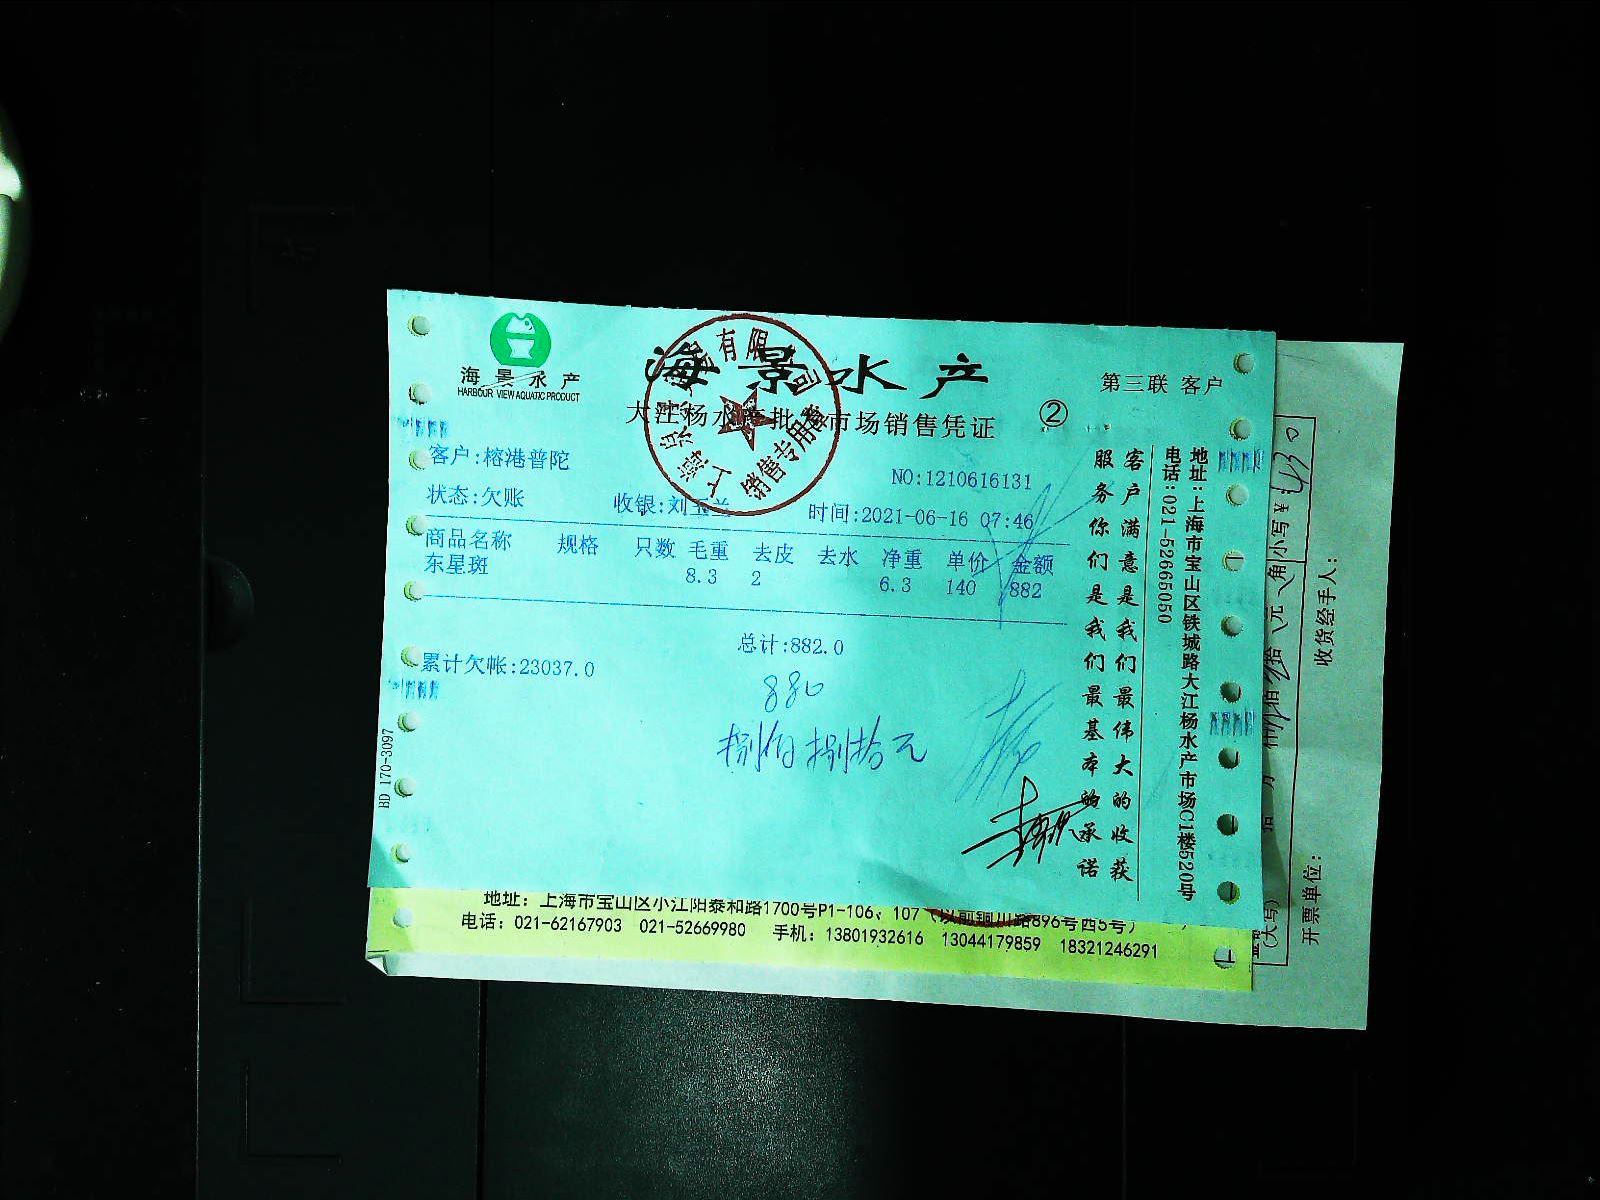 海景水产
HARBOUR VIEW AQUATIC PRODUCT
海景水产
第三联 客户
大江杨水产批发市场销售凭证 ②
销售专用章
客户:榕港普陀
NO:1210616131
状态:欠账 收银:刘玉兰 时间:2021-06-16 07:46
商品名称 规格 只数 毛重 去皮 去水 净重 单价 金额
东星斑 8.3 2 6.3 140 882
总计:882.0
累计欠帐:23037.0
880
捌佰捌拾元
BD 170-3097
客户满意是我们最伟大的收获
服务你们是我们最基本的承诺
地址:上海市宝山区铁城路大江杨水产市场C1楼520号
电话:021-52665050
地址：上海市宝山区小江阳泰和路1700号P1-106、107（以前铜川路896号西5号）
电话：021-62167903 021-52669980 手机：13801932616 13044179859 18321246291
小写¥
元 角
(大写)
收货经手人：
开票单位：